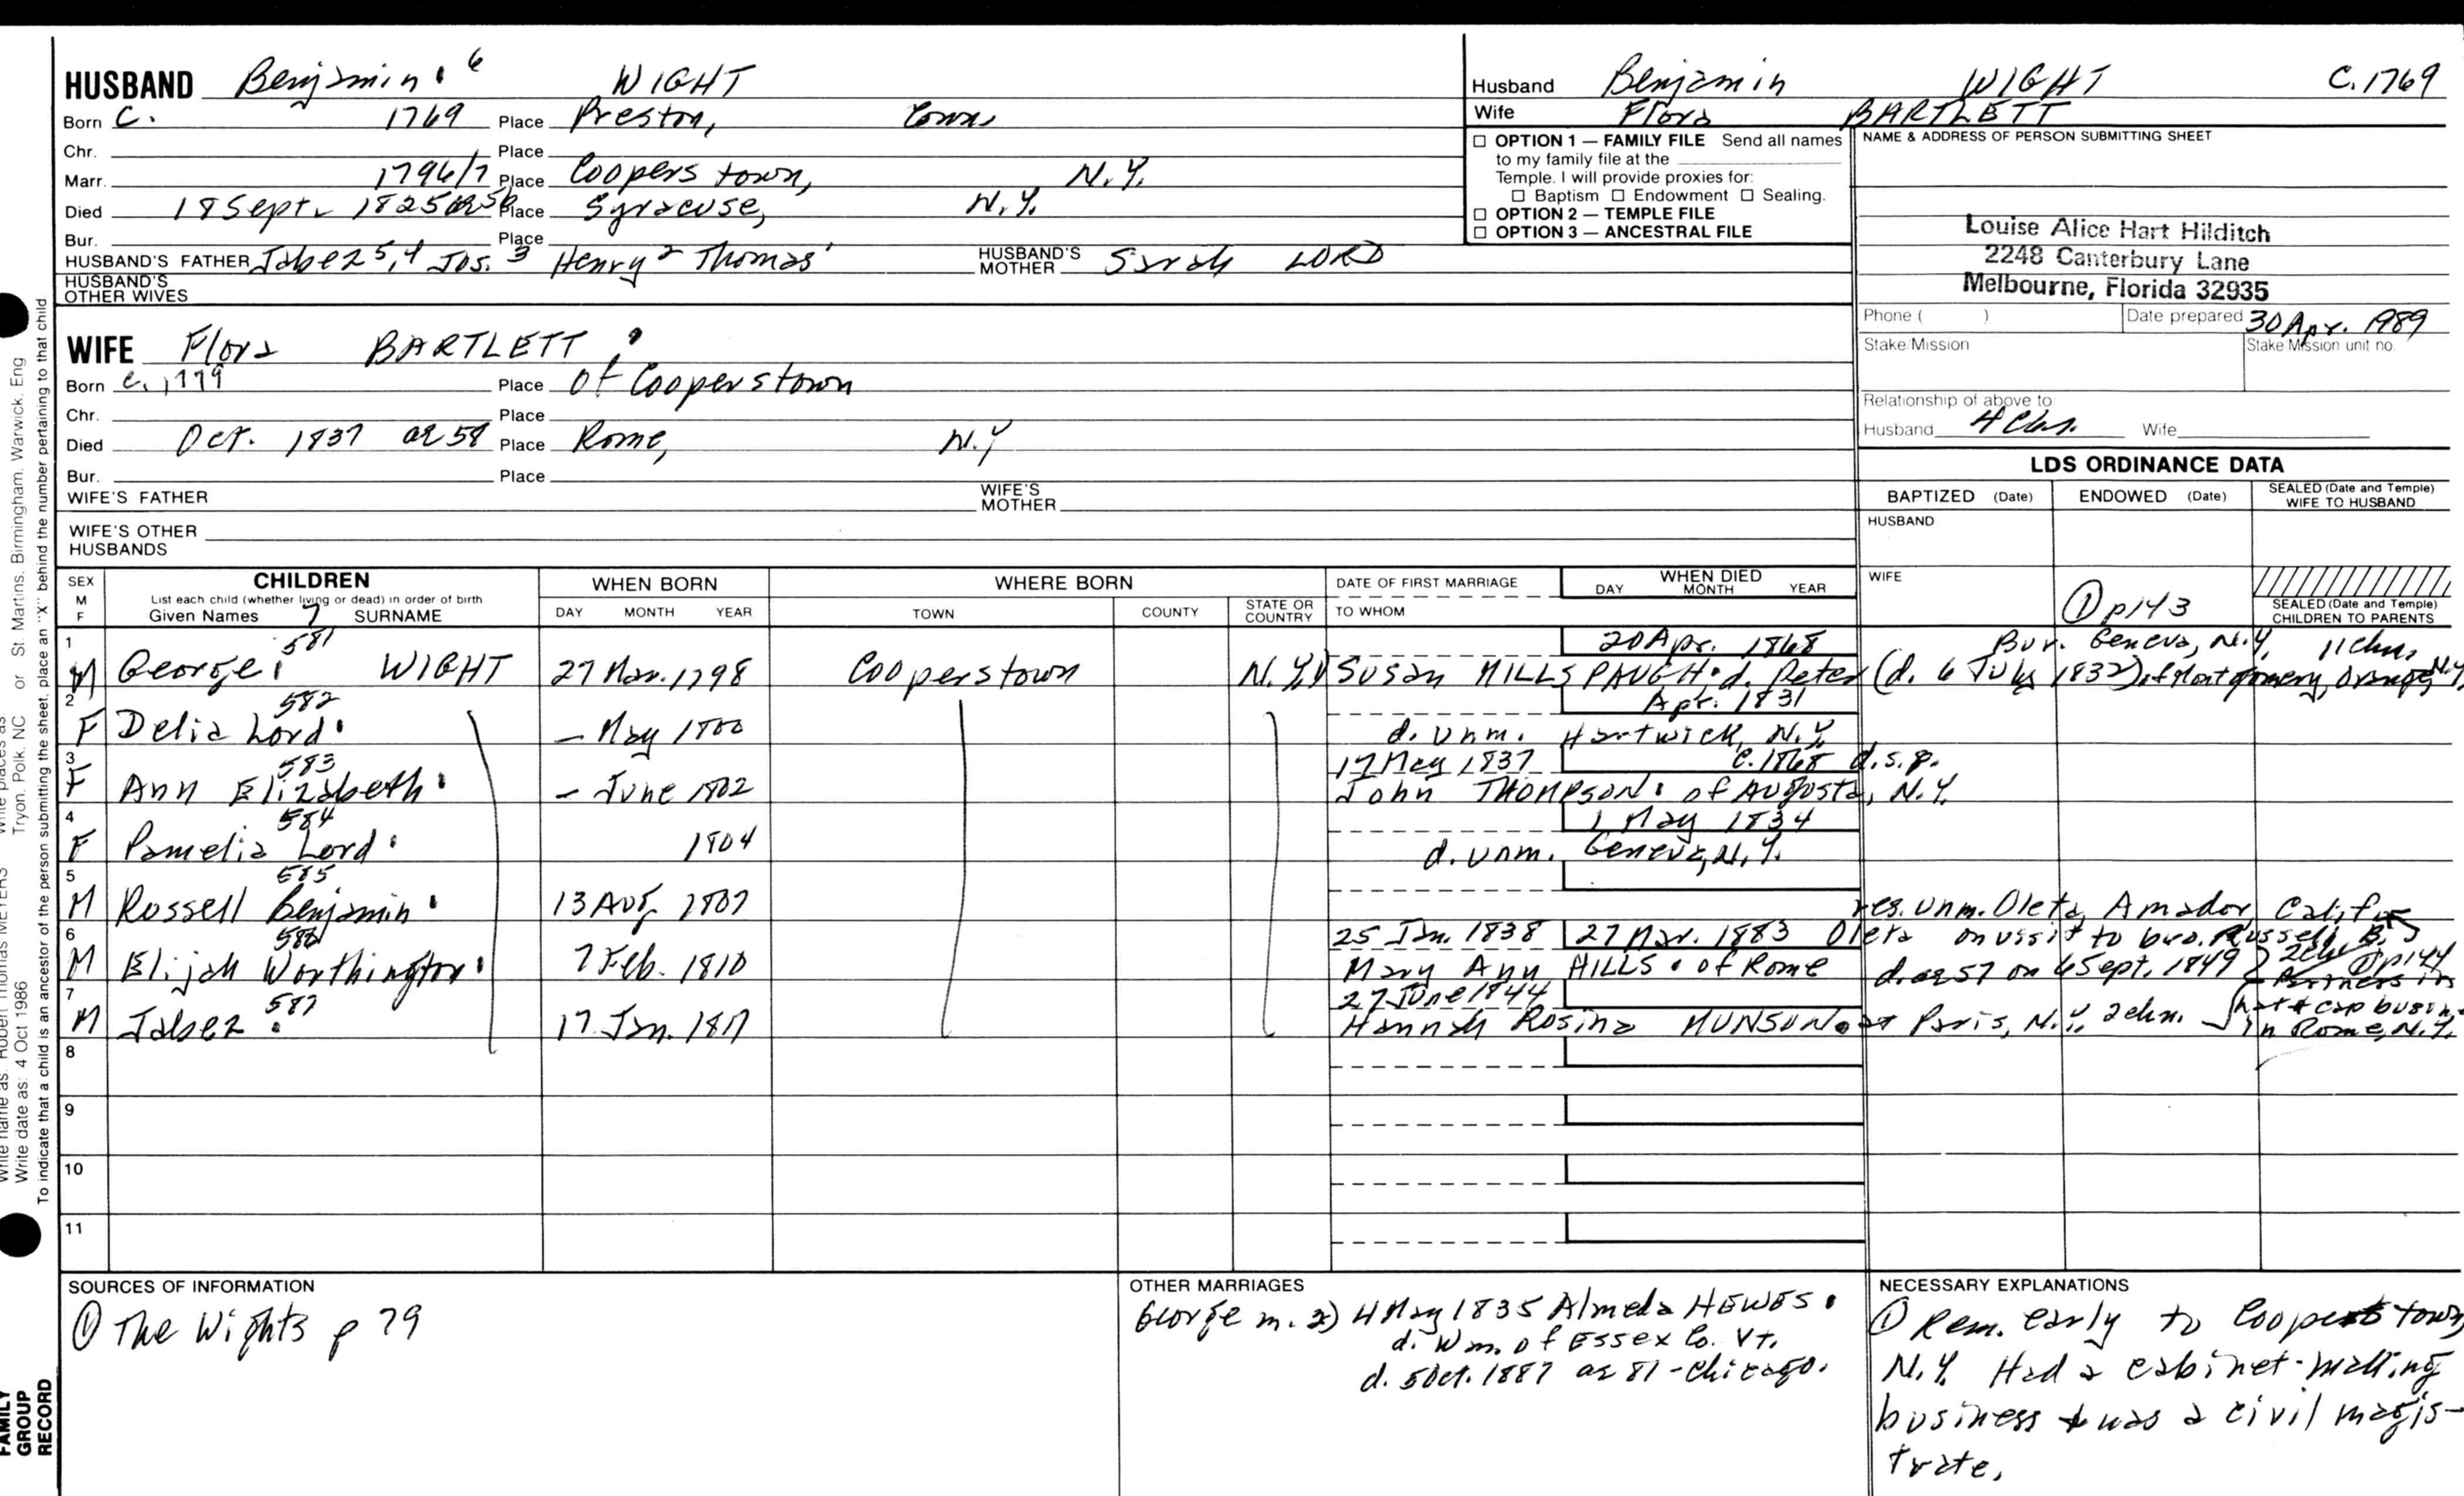 HUSBAND Benjamin 6 WIGHT
Born C. 1769 Place Preston, Conn.
Chr. Place
Marr. 1796/7 Place Cooperstown, N.Y.
Died 18 Sept. 1825 ae 56 Place Syracuse, N.Y.
Bur. Place
HUSBAND'S FATHER Jabez 5,4 Jos. 3 Henry 2 Thomas 1 HUSBAND'S MOTHER Sarah LORD
HUSBAND'S OTHER WIVES
Husband Benjamin WIGHT C.1769
Wife Flora BARTLETT
☐ OPTION 1 — FAMILY FILE Send all names
to my family file at the
Temple. I will provide proxies for:
☐ Baptism ☐ Endowment ☐ Sealing.
☐ OPTION 2 — TEMPLE FILE
☐ OPTION 3 — ANCESTRAL FILE
NAME & ADDRESS OF PERSON SUBMITTING SHEET
Louise Alice Hart Hilditch
2248 Canterbury Lane
Melbourne, Florida 32935
Phone ( ) Date prepared 30 Apr. 1989
Stake/Mission Stake Mission unit no.
Relationship of above to
Husband 4 Chn. Wife
WIFE Flora BARTLETT
Born C. 1779 Place of Cooperstown
Chr. Place
Died Oct. 1837 ae 58 Place Rome, N.Y
Bur. Place
WIFE'S FATHER WIFE'S MOTHER
WIFE'S OTHER HUSBANDS
LDS ORDINANCE DATA
BAPTIZED (Date) ENDOWED (Date) SEALED (Date and Temple) WIFE TO HUSBAND
HUSBAND
WIFE ① p143
SEALED (Date and Temple) CHILDREN TO PARENTS
SEX M F
CHILDREN
List each child (whether living or dead) in order of birth
Given Names 7 SURNAME
WHEN BORN
DAY MONTH YEAR
WHERE BORN
TOWN COUNTY STATE OR COUNTRY
DATE OF FIRST MARRIAGE
TO WHOM
WHEN DIED
DAY MONTH YEAR
1 581 20 Apr. 1868 Bur. Geneva, N.Y. 11 chn.
M George WIGHT 27 Mar. 1798 Cooperstown N.Y. 1) Susan MILLSPAUGH d. Peter (d. 6 July 1832) of Montgomery, Orange, N.Y.
2 582 Apr. 1831
F Delia Lord – May 1800 d. unm. Hartwick, N.Y.
3 583 17 May 1837 C. 1868 d.s.p.
F Ann Elizabeth – June 1802 John THOMPSON of Augusta, N.Y.
4 584 1 May 1834
F Pamelia Lord 1804 d. unm. Geneva, N.Y.
5 585
M Russell Benjamin 13 Aug. 1807 res. unm. Oleta, Amador, Calif.
6 586 25 Jan. 1838 27 Mar. 1883 Oleta on visit to bro. Russell B.
M Elijah Worthington 7 Feb. 1810 Mary Ann HILLS of Rome d. ae 57 on 6 Sept. 1849 2 chn ① p144
7 587 27 June 1844 Partners in
M Jabez 17 Jan. 1817 Hannah Rosina MUNSON at Paris, N.Y. 2 chn. hat & cap busin.
in Rome, N.Y.
8
9
10
11
SOURCES OF INFORMATION
① The Wights p 79
OTHER MARRIAGES
George m. 2) 4 May 1835 Almeda HEWES
d. Wm. of Essex Co. Vt.
d. 5 Oct. 1887 ae 81 - Chicago.
NECESSARY EXPLANATIONS
① Rem. early to Cooperstown,
N.Y. Had a cabinet-making
business & was a civil magis-
trate.
or St. Martins, Birmingham, Warwick, Eng
Tryon, Polk, NC
Write date as: 4 Oct 1986
To indicate that a child is an ancestor of the person submitting the sheet, place an "X" behind the number pertaining to that child
FAMILY
GROUP
RECORD